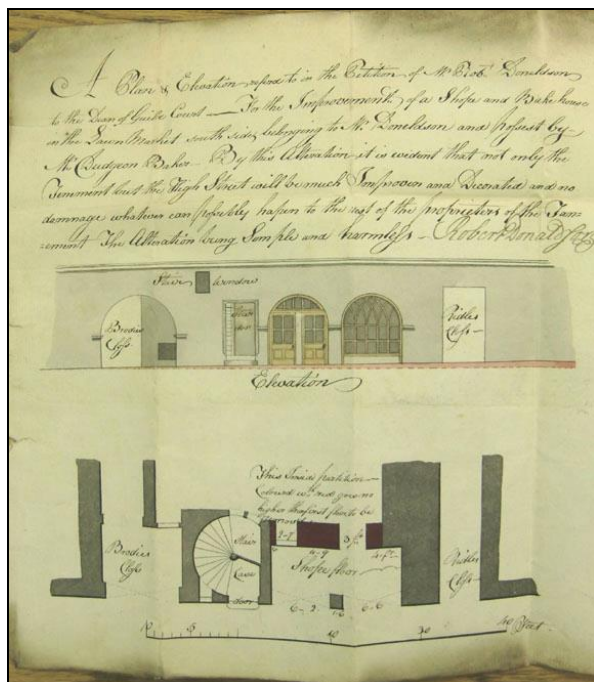 A Plan & Elevation referd to in the Petition of Mr Rob.t Donaldson
to the Dean of Guild Court — For the Improvement of a Shope and Bake house
in the Lawn Market south side, belonging to Mr. Doneldson and posest by
Mr. Dudgeon Baker. By this Alteration it is evident that not only the
Tennment but the High Street will be much Improven and Decorated and no
damnage whatever can possiblely hapen to the rest of the proprietors of the Tan-
nement The Alteration being Semple and harmless — Robert Donaldson
Stair Window
Brodies
Closs
door
Ridles
Closs
Elevation
This Inside partition
Coloured wt. red goes no
higher than first floor to be
Brodies
Closs
Stair
Case
door
2-7
4-9
3 ft.
4 ft.
Shope floor
Ridles
Closs
6-2
1-6
6-6
10
5
10
20
30
40 Feet